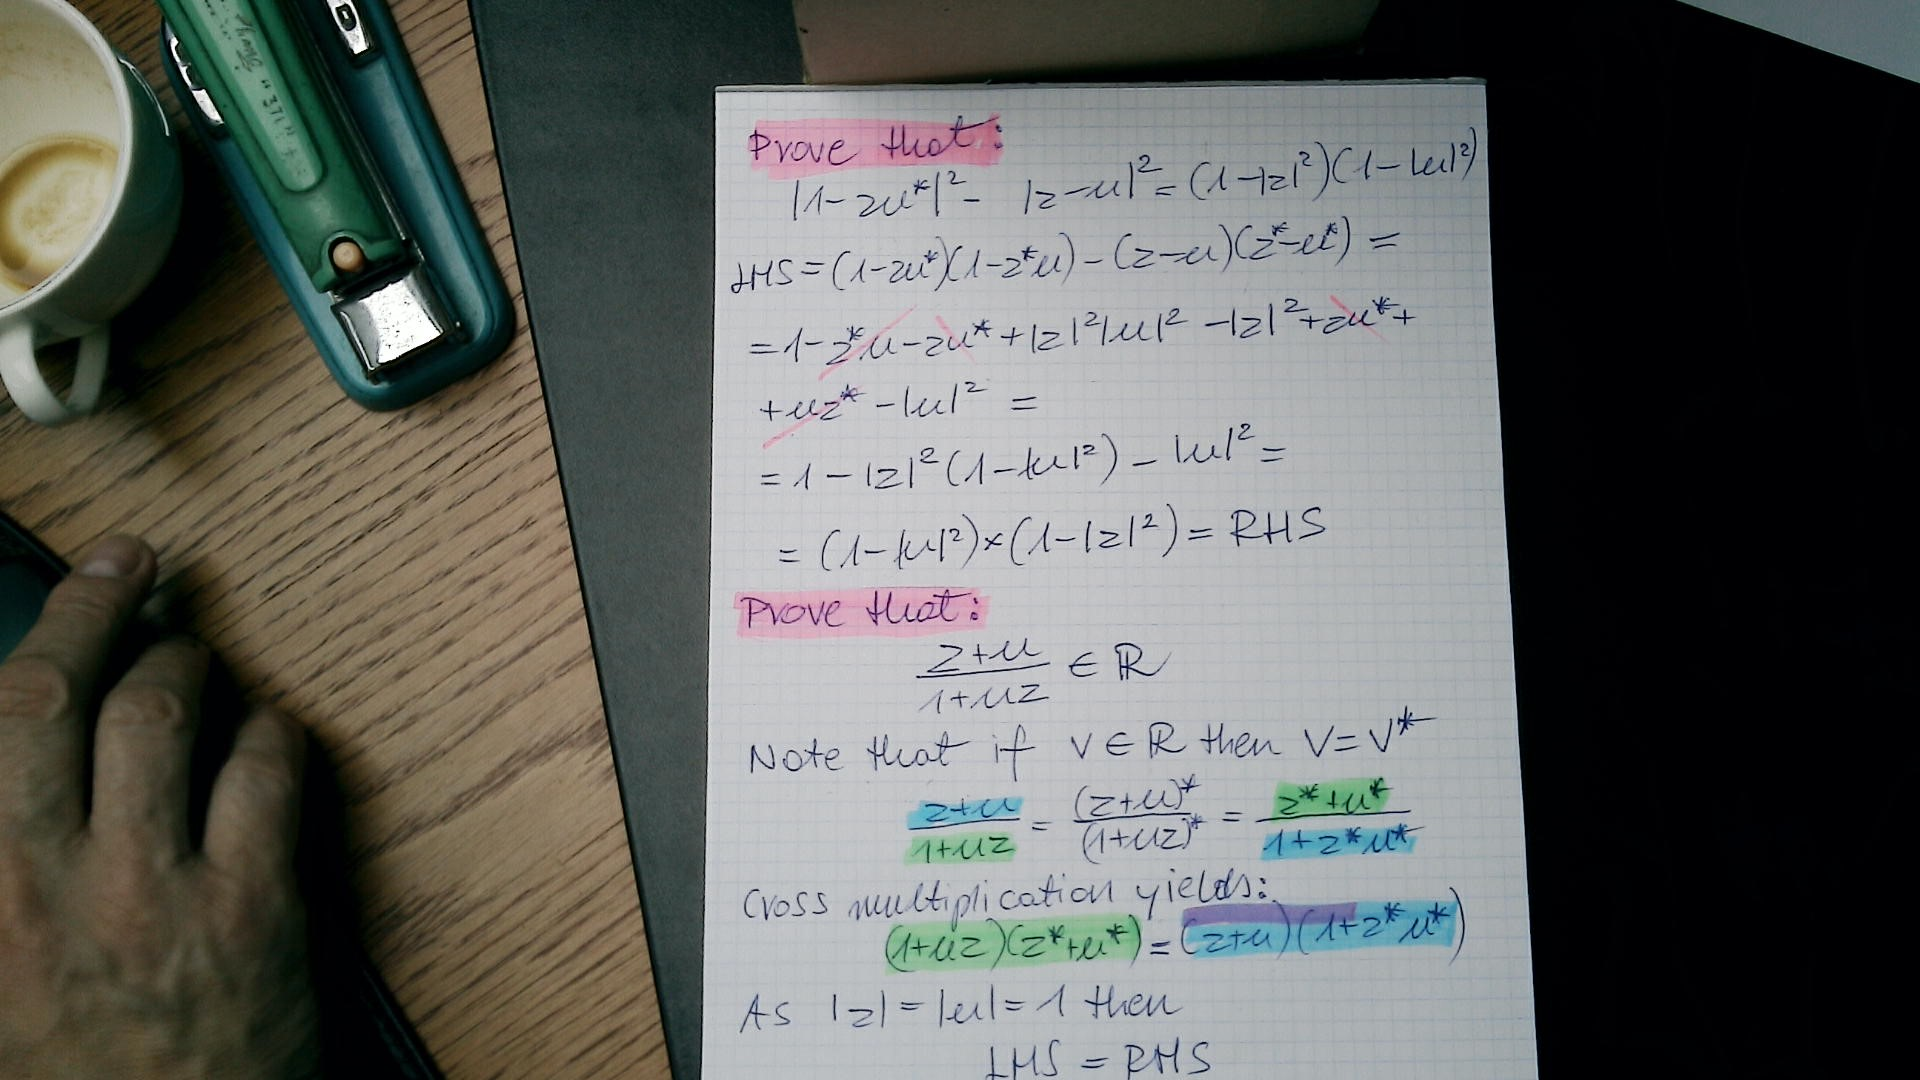 Prove that:
|1-zu*|²- |z-u|²=(1-|z|²)(1-|u|²)
LHS=(1-zu*)(1-z*u)-(z-u)(z*-u*)=
=1-z*u-zu*+|z|²|u|²-|z|²+zu*+
+uz*-|u|²=
=1-|z|²(1-|u|²)-|u|²=
=(1-|u|²)×(1-|z|²)=RHS
Prove that:
z+u/1+uz ∈ ℝ
Note that if v∈ℝ then v=v*
z+u/1+uz = (z+u)*/(1+uz)* = z*+u*/1+z*u*
Cross multiplication yields:
(1+uz)(z*+u*)=(z+u)(1+z*u*)
As |z|=|u|=1 then
LHS = RHS